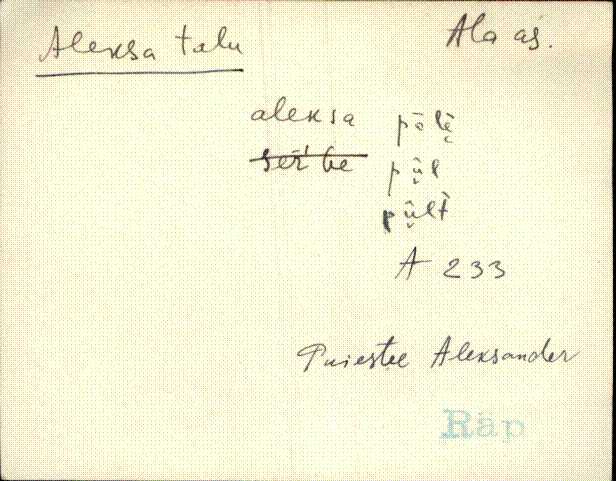 Aleksa talu
Ala as.
aleksa pălè̮
ser'be pū̬l
pū̬lt
A 233
Puiestee Aleksander
Räp